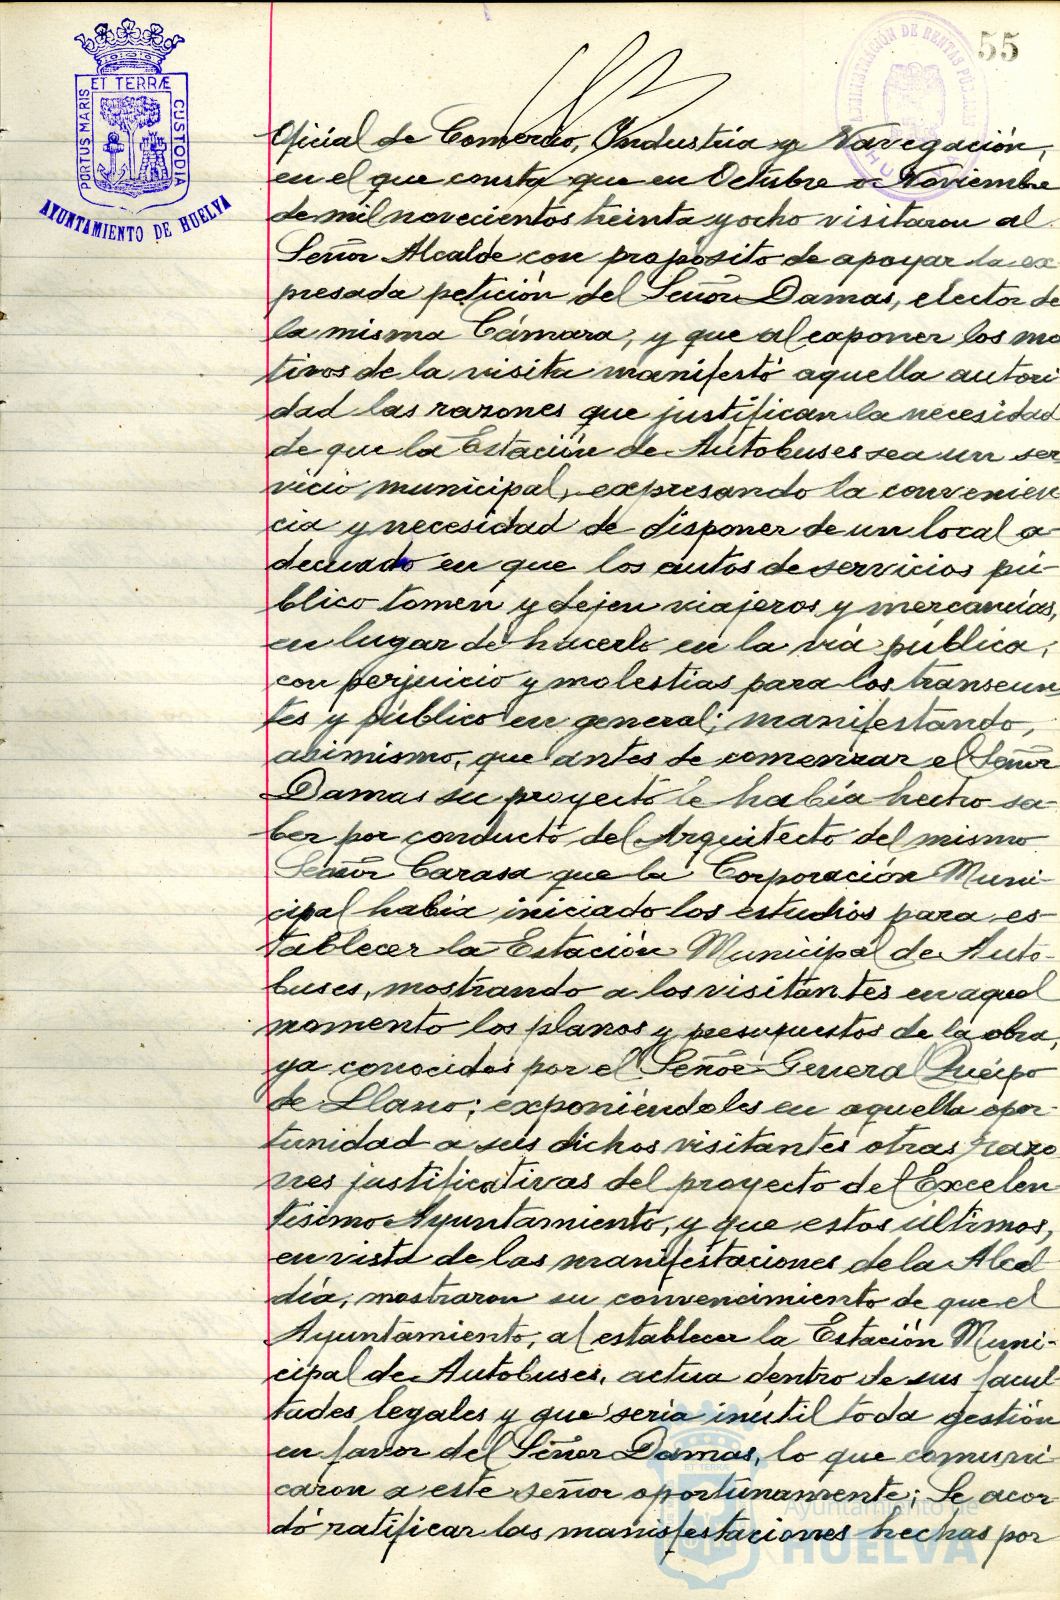 PORTUS MARIS ET TERRÆ CUSTODIA
AYUNTAMIENTO DE HUELVA
ADMINISTRACIÓN DE RENTAS PÚBLICAS
HUELVA
55
Oficial de Comercio, Industria y Navegación,
en el que consta que en Octubre o Noviembre
de mil novecientos treinta y ocho visitaron al
Señor Alcalde con propósito de apoyar la ex
presada petición del Señor Damas, elector de
la misma Cámara, y que al exponer los mo
tivos de la visita manifestó aquella autori
dad las razones que justifican la necesidad
de que la Estación de Autobuses sea un ser
vicio municipal, expresando la convenien
cia y necesidad de disponer de un local a-
decuado en que los autos de servicios pú-
blico tomen y dejen viajeros y mercancías,
en lugar de hacerlo en la vía pública,
con perjuicio y molestias para los transeun
tes y público en general; manifestando,
asimismo, que antes de comenzar el Señor
Damas su proyecto le había hecho sa-
ber por conducto del Arquitecto del mismo
Señor Carasa que la Corporación Muni-
cipal había iniciado los estudios para es-
tablecer la Estación Municipal de Auto-
buses, mostrando a los visitantes en aquel
momento los planos y presupuestos de la obra,
ya conocidos por el Señor General Queipo
de Llano; exponiéndoles en aquella opor-
tunidad a sus dichos visitantes otras razo
nes justificativas del proyecto del Excelen
tísimo Ayuntamiento, y que estos últimos,
en vista de las manifestaciones de la Alcal
día, mostraron su convencimiento de que el
Ayuntamiento, al establecer la Estación Muni-
cipal de Autobuses, actua dentro de sus facul
tades legales y que sería inútil toda gestión
en favor del Señor Damas, lo que comuni-
caron a este señor oportunamente; Se acor
dó ratificar las manisfestaciones hechas por
Ayuntamiento de
HUELVA